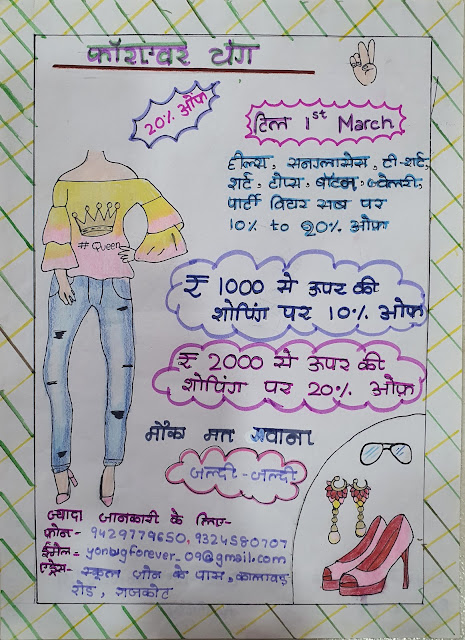 फॉरएवर यंग
20% ऑफ़
टिल 1st March
हील्स, सनग्लासेस, टी-शर्ट,
शर्ट, टोप्स, बॉटम, ज्वेलरी,
पार्टी वियर सब पर
10% to 20% ऑफ़
# Queen
₹ 1000 से ऊपर की
शोपिंग पर 10% ऑफ़
₹ 2000 से ऊपर की
शोपिंग पर 20% ऑफ़
मौका मत गवाना
जल्दी-जल्दी
ज्यादा जानकारी के लिए-
फ़ोन- 9429779650, 9324580707
ईमेल= yonugforever_09@gmail.com
एड्रेस- स्कूल ज़ोन के पास, कालावड़
रोड, राजकोट